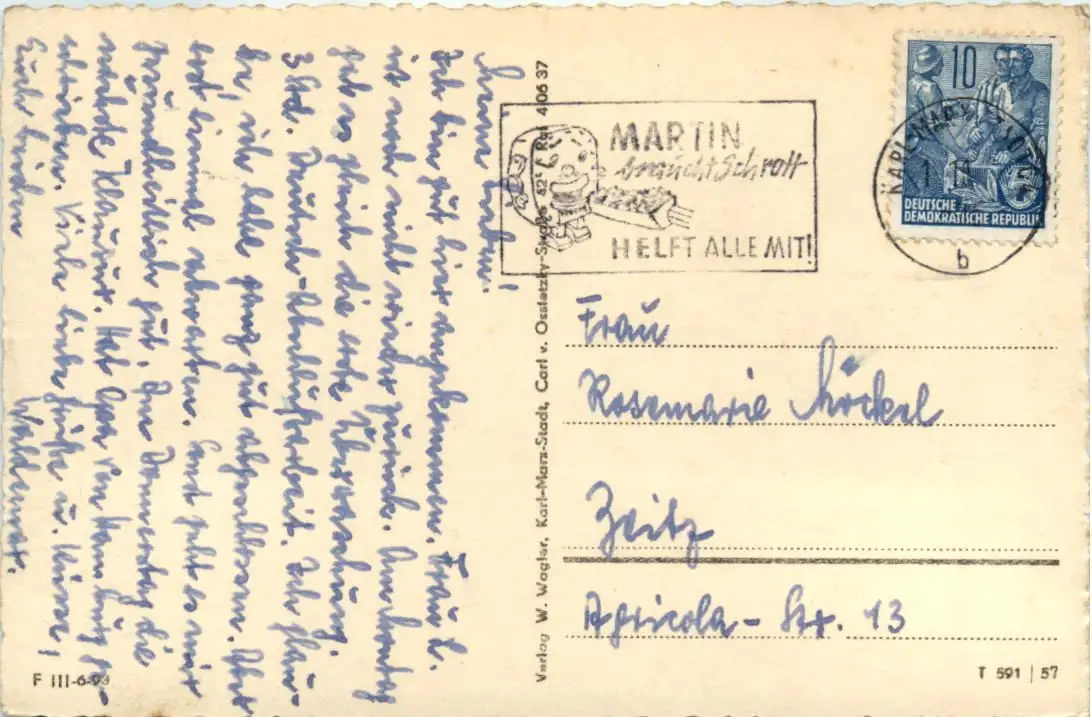 Meine Lieben!
Ich bin gut hier angekommen. Frau L.
ist noch nicht wieder zurück. Am Montag
gab es gleich die erste Überraschung.
3 Std. Deutsch-Abschlußarbeit. Ich glau-
be, ich habe ganz gut abgeschlossen. Aber
erst einmal abwarten. Sonst geht es mir
gesundheitlich gut. Am Donnerstag die
nächste Klausur. Hat von Hamburg ge-
schrieben. Viele liebe Grüße u. Küsse,
Euch beiden
Waldemar.
MARTIN
braucht Schrott
HELFT ALLE MIT!
KARL-MARX-
b
10
5
DEUTSCHE
DEMOKRATISCHE REPUBLIK
Frau
Rosemarie Möckel
Zeitz
Agricola-Str. 13
Verlag W. Wagler, Karl-Marx-Stadt, Carl v. Ossietzky-Straße Ruf 4 06 37
F III-6-93
T 591 | 57